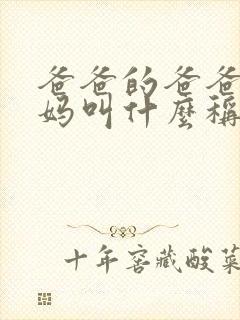 爸爸的爸爸
妈叫什麼稱
十年窖藏酸菜